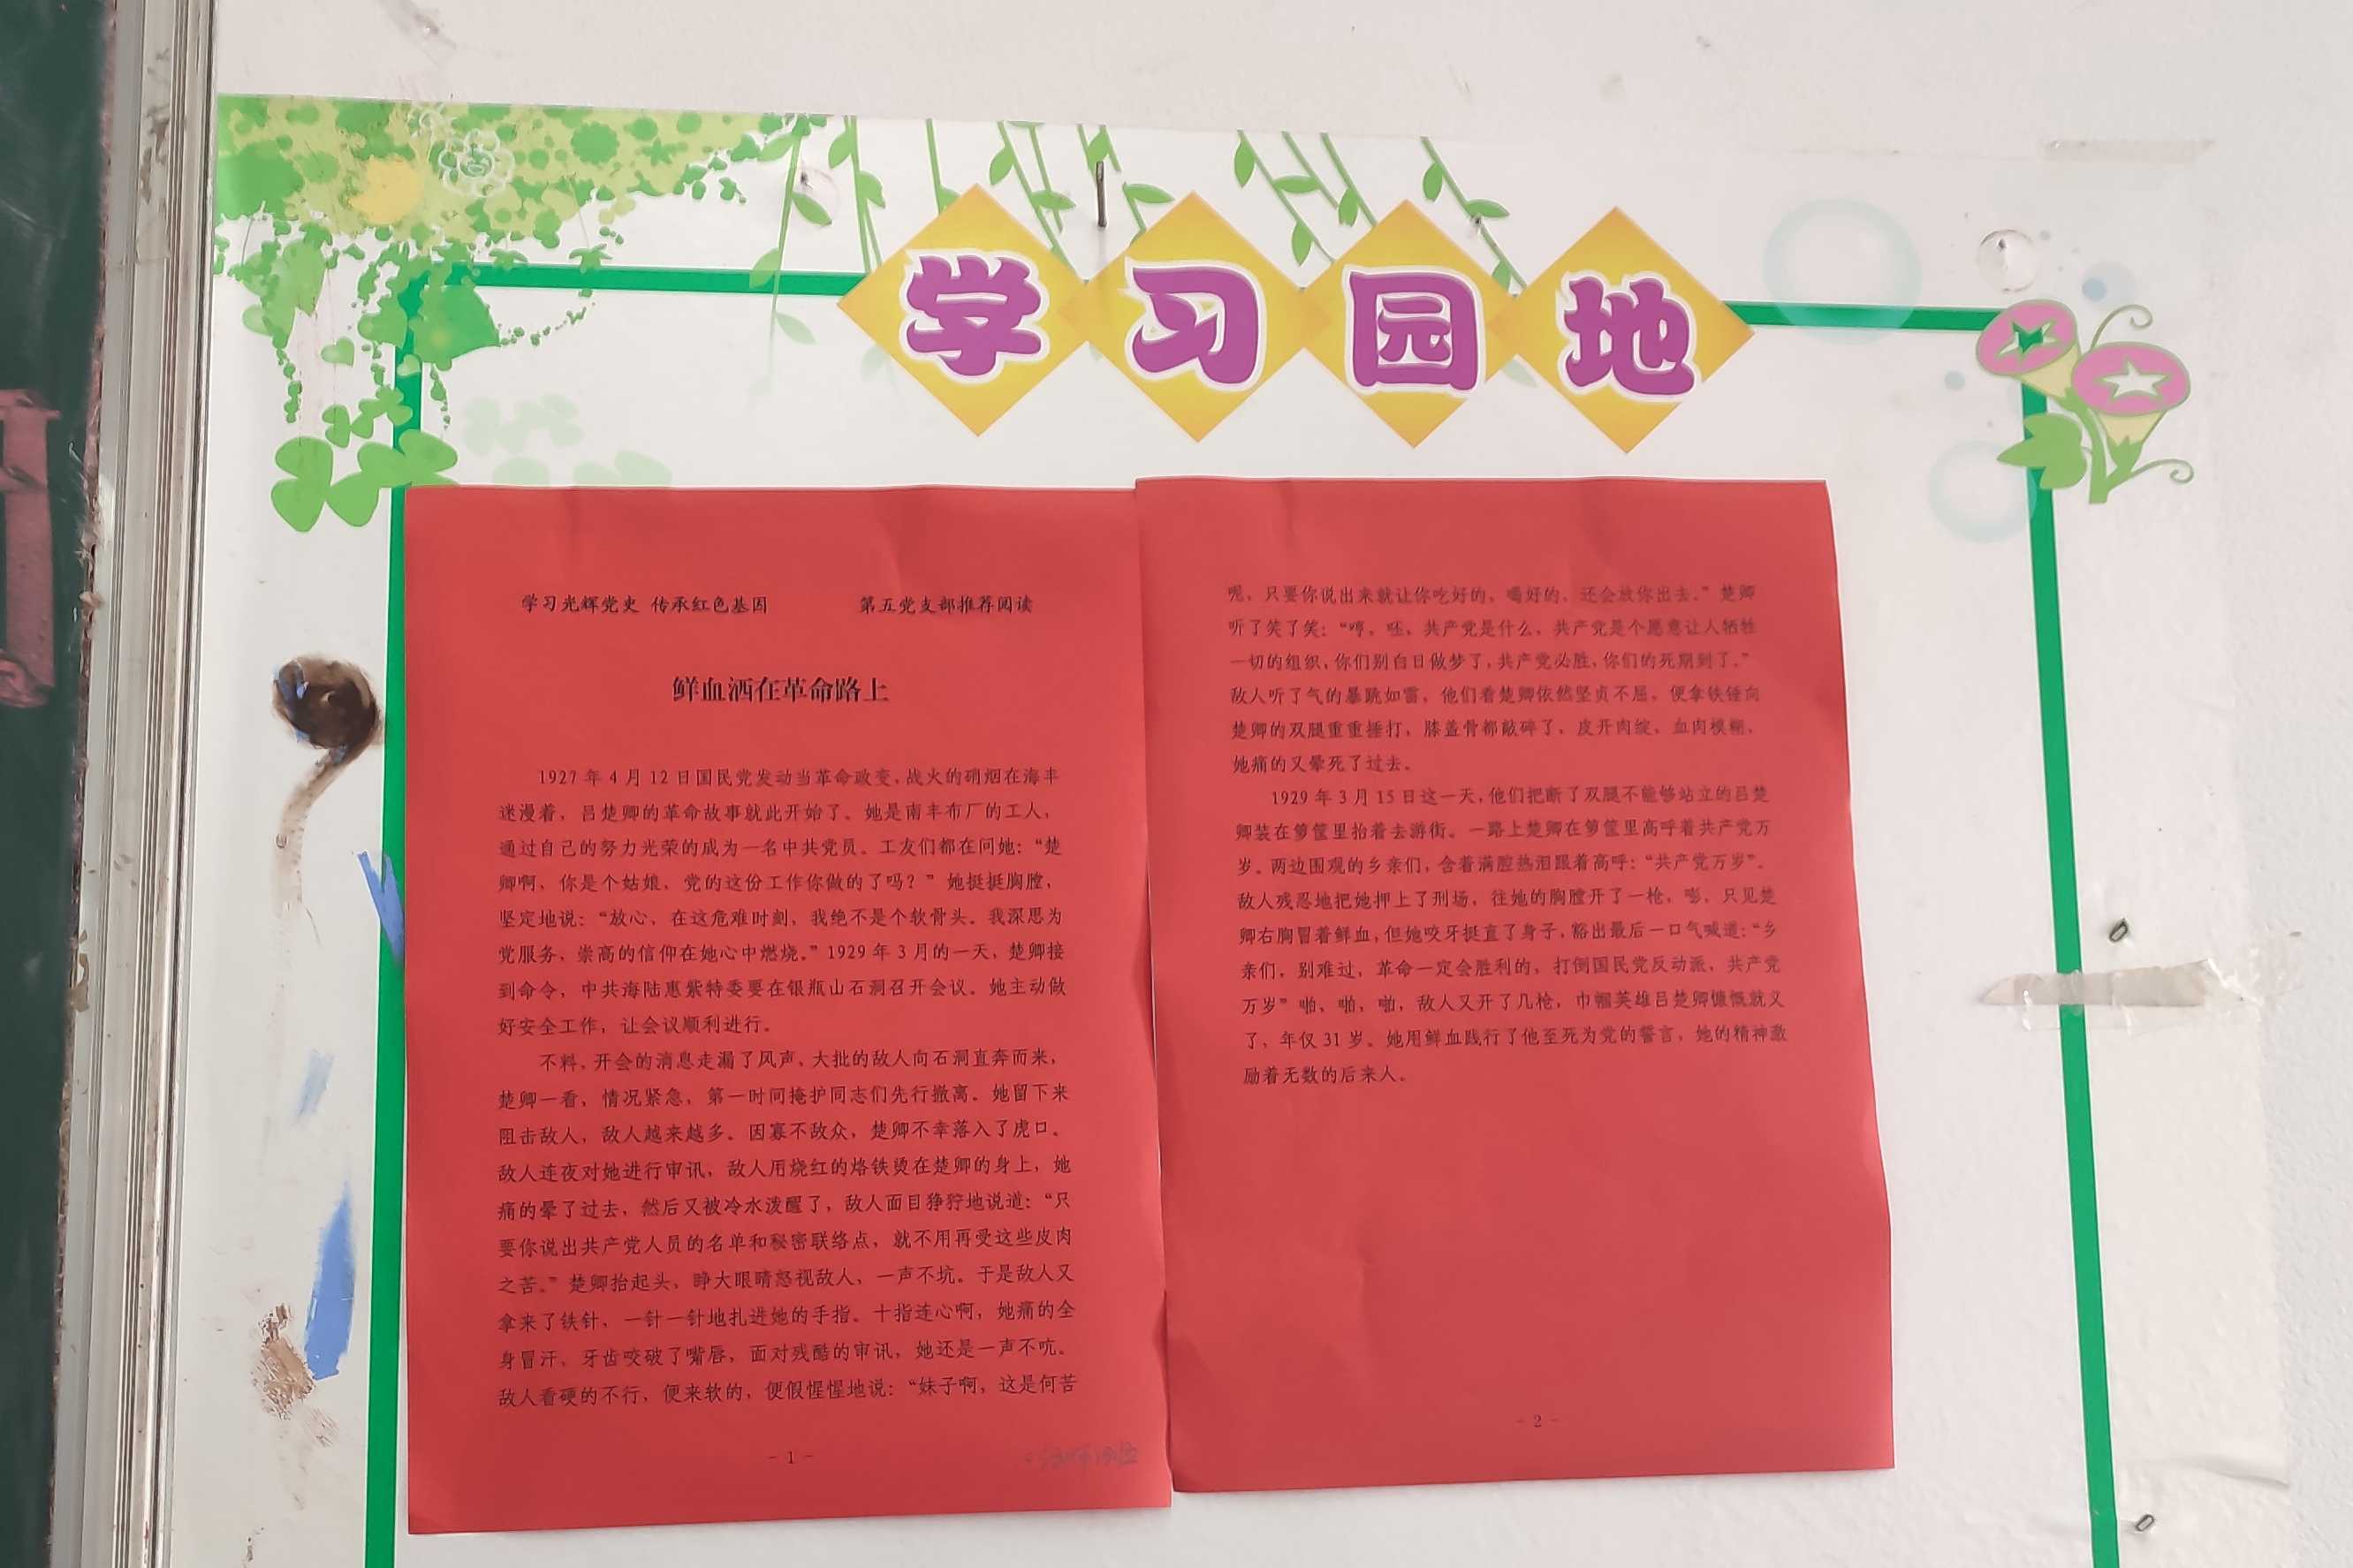 学习园地
学习光辉党史 传承红色基因 第五党支部推荐阅读
鲜血洒在革命路上
1927年4月12日国民党发动当革命政变，战火的硝烟在海丰
迷漫着，吕楚卿的革命故事就此开始了。她是南丰布厂的工人，
通过自己的努力光荣的成为一名中共党员。工友们都在问她：“楚
卿啊，你是个姑娘，党的这份工作你做的了吗？”她挺挺胸膛，
坚定地说：“放心，在这危难时刻，我绝不是个软骨头。我深思为
党服务，崇高的信仰在她心中燃烧。”1929年3月的一天，楚卿接
到命令，中共海陆惠紫特委要在银瓶山石洞召开会议。她主动做
好安全工作，让会议顺利进行。
不料，开会的消息走漏了风声，大批的敌人向石洞直奔而来，
楚卿一看，情况紧急，第一时间掩护同志们先行撤离。她留下来
阻击敌人，敌人越来越多。因寡不敌众，楚卿不幸落入了虎口。
敌人连夜对她进行审讯，敌人用烧红的烙铁烫在楚卿的身上，她
痛的晕了过去，然后又被冷水泼醒了，敌人面目狰狞地说道：“只
要你说出共产党人员的名单和秘密联络点，就不用再受这些皮肉
之苦。”楚卿抬起头，睁大眼睛怒视敌人，一声不坑。于是敌人又
拿来了铁针，一针一针地扎进她的手指。十指连心啊，她痛的全
身冒汗，牙齿咬破了嘴唇，面对残酷的审讯，她还是一声不吭。
敌人看硬的不行，便来软的，便假惺惺地说：“妹子啊，这是何苦
- 1 -
呢，只要你说出来就让你吃好的，喝好的，还会放你出去。”楚卿
听了笑了笑：“哼，呸，共产党是什么，共产党是个愿意让人牺牲
一切的组织，你们别白日做梦了，共产党必胜，你们的死期到了。”
敌人听了气的暴跳如雷，他们看楚卿依然坚贞不屈，便拿铁锤向
楚卿的双腿重重捶打，膝盖骨都敲碎了，皮开肉绽，血肉模糊，
她痛的又晕死了过去。
1929年3月15日这一天，他们把断了双腿不能够站立的吕楚
卿装在箩筐里抬着去游街。一路上楚卿在箩筐里高呼着共产党万
岁。两边围观的乡亲们，含着满腔热泪跟着高呼：“共产党万岁”。
敌人残忍地把她押上了刑场，往她的胸膛开了一枪，嘭，只见楚
卿右胸冒着鲜血，但她咬牙挺直了身子，豁出最后一口气喊道：“乡
亲们，别难过，革命一定会胜利的，打倒国民党反动派，共产党
万岁”啪，啪，啪，敌人又开了几枪，巾帼英雄吕楚卿慷慨就义
了，年仅31岁。她用鲜血践行了他至死为党的誓言，她的精神激
励着无数的后来人。
- 2 -